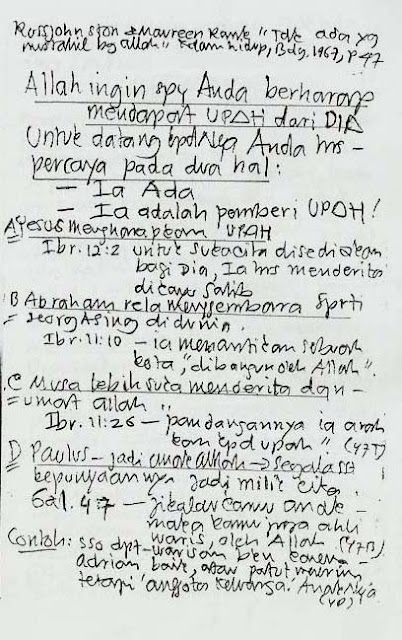 Russ Johnston & Maureen Rank "Tdk ada yg
mustahil bg Allah" Kalam hidup, Bdg. 1967, p 47
Allah ingin spy Anda berharap
mendapat UPAH dari DIA
Untuk datang kpdNya Anda ms-
percaya pada dua hal:
— Ia Ada
— Ia adalah pemberi UPAH!
A Yesus mengharapkan UPAH
Ibr. 12:2 untuk sukacita disediakan
bagi Dia, Ia ms menderita
di kayu salib
B Abraham rela mengembara sprti
= seorg Asing di dunia.
Ibr. 11:10 — ia menantikan sebuah
kota, "dibangun oleh Allah".
C Musa lebih suka menderita dgn —
= umat Allah
Ibr. 11:26 — pandangannya ia arah
kan kpd upah" (47T)
D Paulus — jadi anak Allah → segala sst
kepunyaanNya jadi milik kita.
Gal. 4:7 — jikalau kamu anak —
maka kamu juga ahli
waris, oleh Allah (47B)
Contoh: sso dpt warisan bkn karena
baik, atau patut
tetapi anggota keluarga. AnakNya